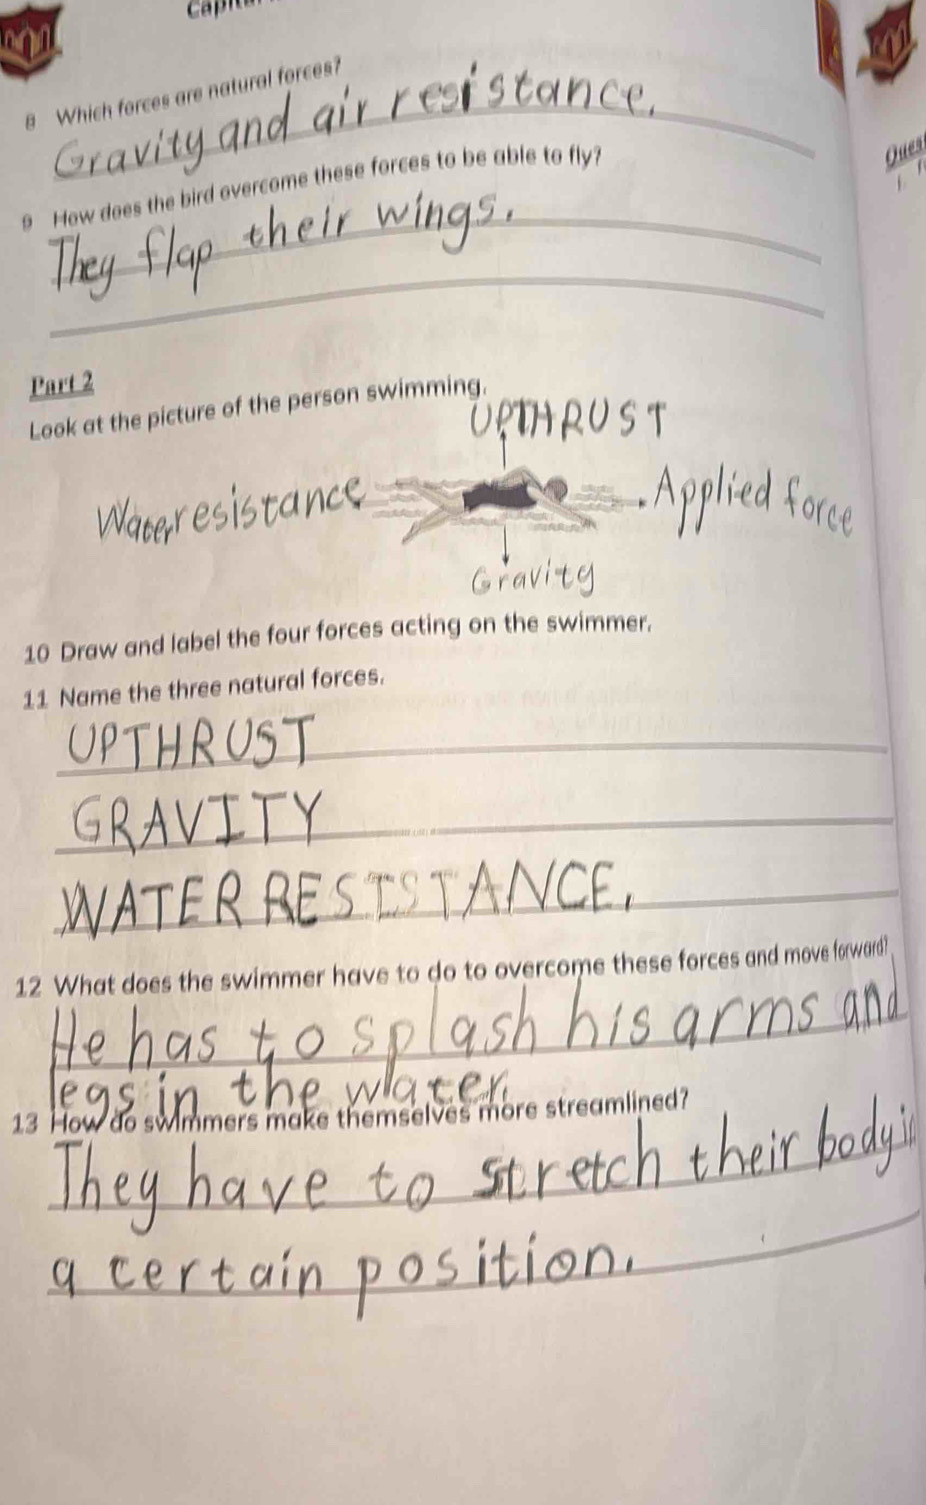 8 Which forces are natural forces?
Gravity and air resistance.
9 How does the bird overcome these forces to be able to fly?
They flap their wings.
Part 2
Look at the picture of the person swimming.
UPTHRUST
Water resistance
Applied force
Gravity
10 Draw and label the four forces acting on the swimmer.
11 Name the three natural forces.
UPTHRUST
GRAVITY
WATER RESISTANCE.
12 What does the swimmer have to do to overcome these forces and move forward?
He has to splash his arms and
legs in the water.
13 How do swimmers make themselves more streamlined?
They have to stretch their body in
a certain position.